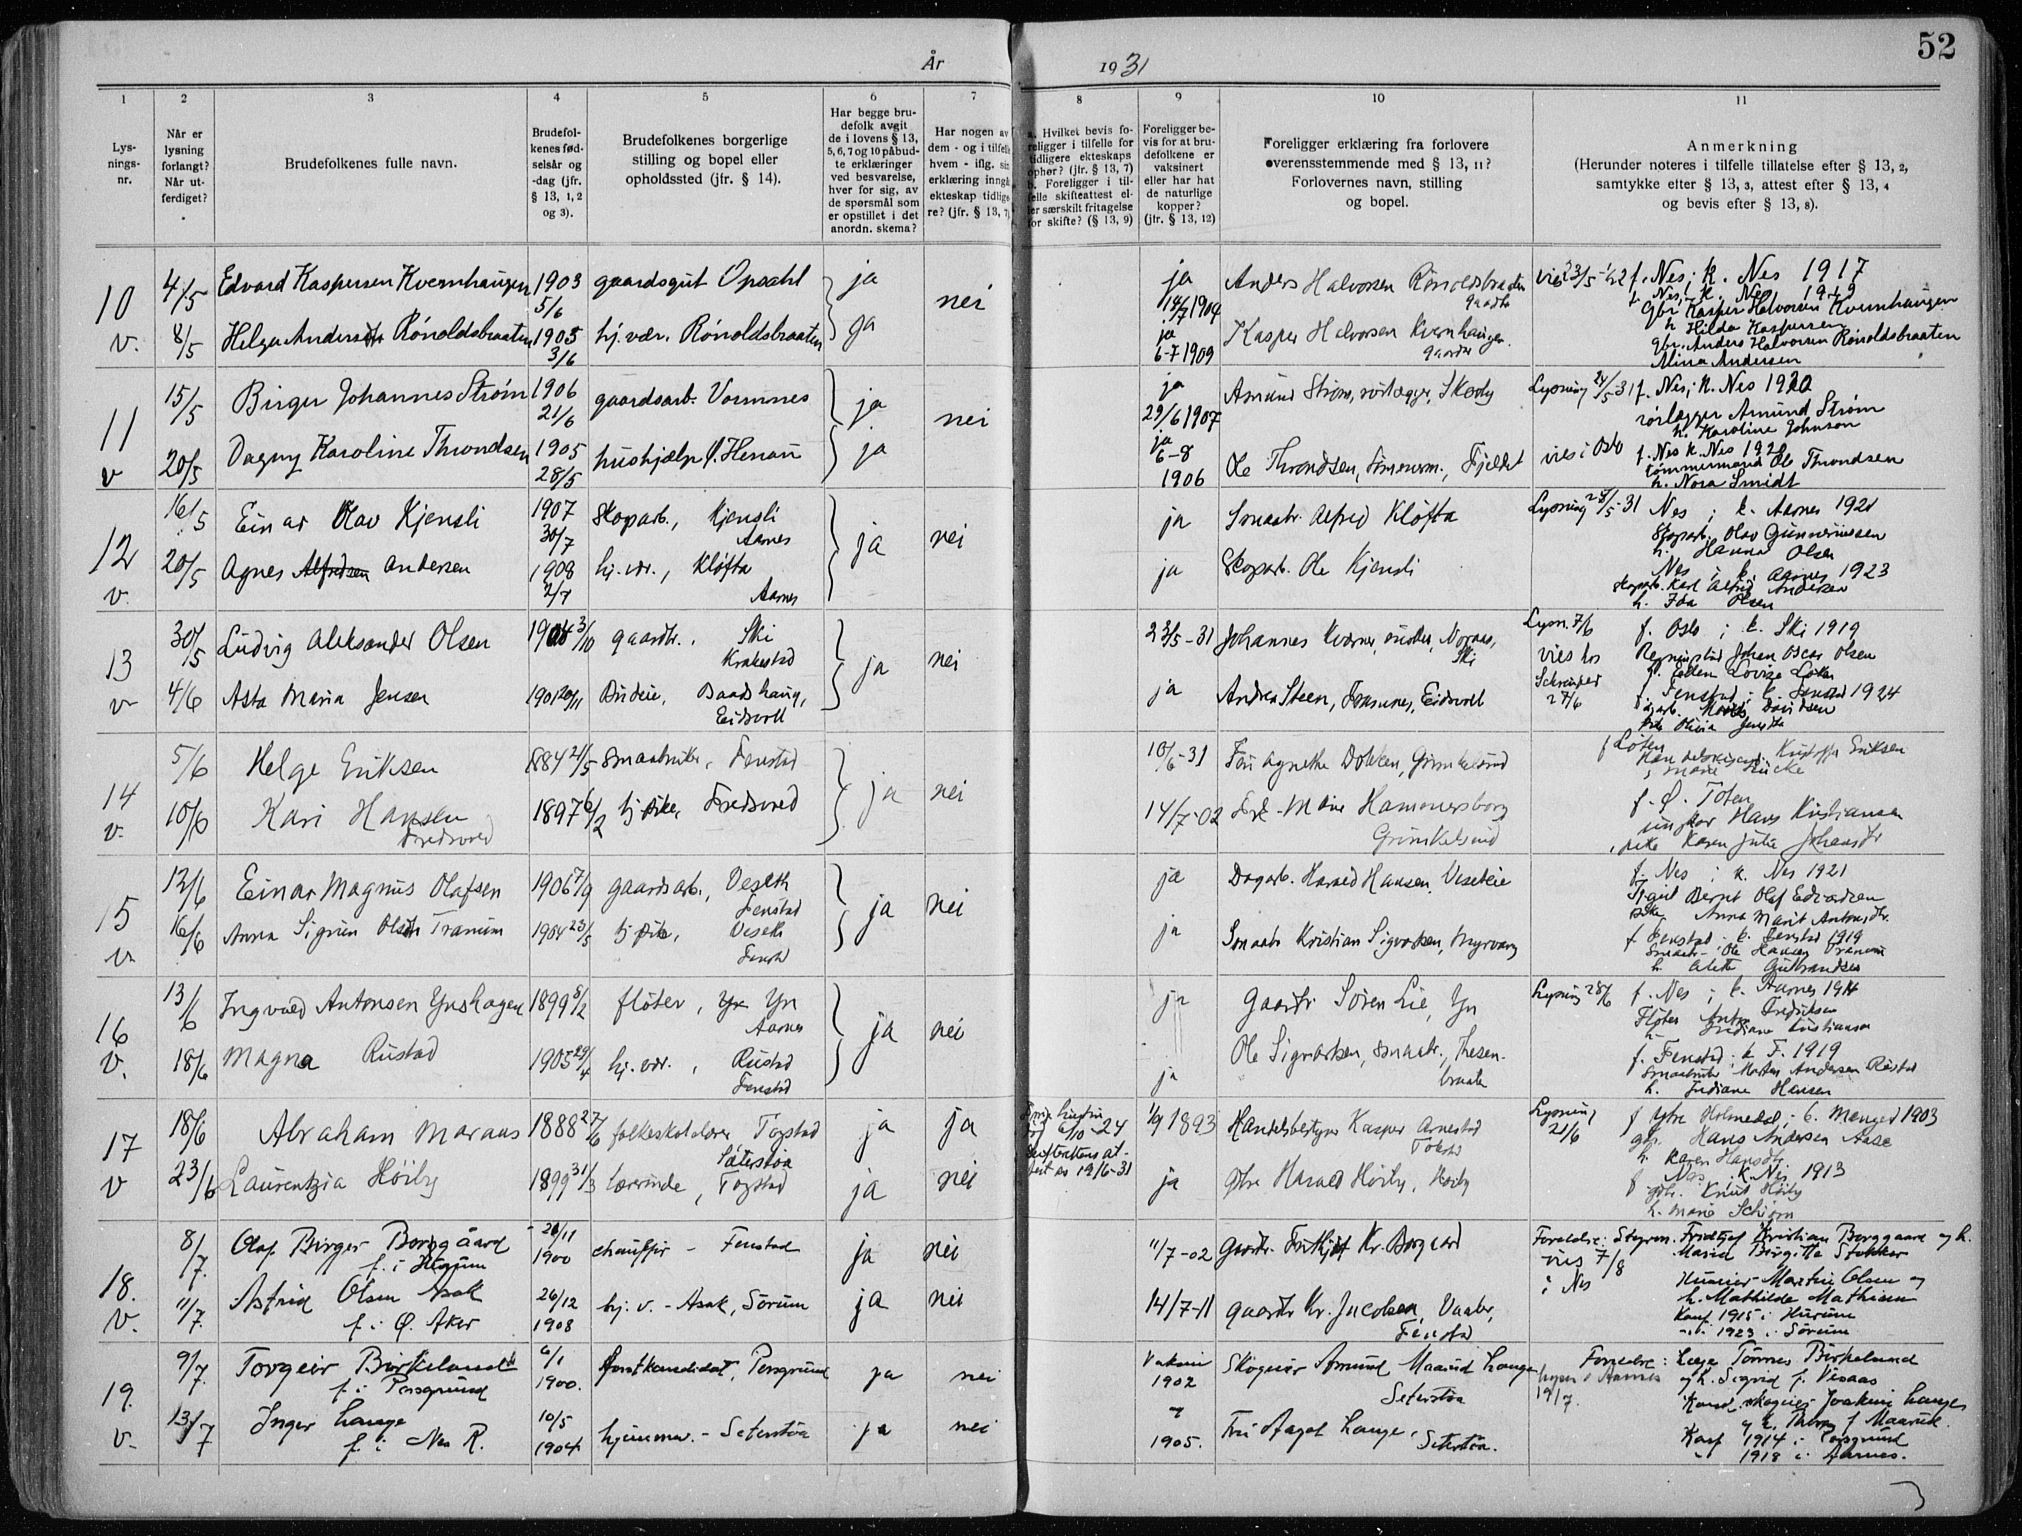 52
År 1931
1 2 3 4 5 6 7 8 9 10 11
Lys-
nings-
nr.
Når er
lysning
forlangt?
Når ut-
ferdiget?
Brudefolkenes fulle navn.
Brudefol-
kenes fød-
selsår og
-dag (jfr.
§ 13, 1, 2
og 3).
Brudefolkenes borgerlige
stilling og bopel eller
opholdssted (jfr. § 14).
Har begge bru-
defolk avgit
de i lovens § 13,
5, 6, 7 og 10 påbud-
te erklæringer
ved besvarelse,
hver for sig, av
de spørsmål som
er opstillet i det
anordn. skema?
Har nogen av
dem - og i tilfelle
hvem - iflg. sin
erklæring inngå
ekteskap tidlige
re? (jfr. § 13, 7)
a. Hvilket bevis fo-
religger i tilfelle for
tidligere ekteskaps
ophør? (jfr. § 13, 7)
b. Foreligger i til-
felle skifteattest el-
ler særskilt fritagelse
for skifte? (§ 13, 9)
Foreligger be-
vis for at bru-
defolkene er
vaksinert
eller har hat
de naturlige
kopper?
(jfr. § 13, 12)
Foreligger erklæring fra forlovere
overensstemmende med § 13, 11?
Forlovernes navn, stilling
og bopel.
Anmerkning
(Herunder noteres i tilfelle tillatelse efter § 13, 2,
samtykke efter § 13, 3, attest efter § 13, 4
og bevis efter § 13, 8).
10 4/5 Edvard Kaspersen Kvernhaugen 1903 gaardsgut Opsahl ja nei ja Anders Halvorsen Rönoldsbraaten f. Nes; k. Nes 1917
5/6 gaardbr f. Nes, k. Nes 1919
gbr Kasper Halvorsen Kvernhaugen
h. Hilda Kaspersen
v. 8/5 Helga Andersdtr Rönoldsbraaten 1905 hj. vær. Rönoldsbraaten ja ja Kasper Halvorsen Kvernhaugen gbr. Anders Halvorsen Rönoldsbraaten
3/6 6-7 1909 gaardbr Alina Andersen
11 15/5 Birger Johannes Strøm 1906 gaardsarb. Vormnes ja nei ja Amund Strøm, rörlegger, Skarby Lysning 24/5-31 f. Nes; k. Nes 1920
21/6 29/6 1907 rörlegger Amund Strøm
h. Karoline Johnson
v 20/5 Dagny Karoline Throndsen 1905 hushjælp Ø. Henau ja ja Ole Throndsen, Fjeldet vies i Oslo f. Nes k. Nes 1920
28/5 6-8 tømmermand Ole Throndsen
1906 h. Nora Smidt
12 16/5 Einar Olav Kjensli 1907 Skoarb., Kjensli ja nei ja Smaabr. Alfred Kløfta Lysning 28/5-31 Nes ; k. Aarnes 1921
30/7 Aarnes Skoarb. Olav Gunneriussen
h. Hanna Olsen
v. 20/5 Agnes Alfredsen Andersen 1908 hj. vær., Kløfta ja Skoarb. Ole Kjensli Nes ; k. Aarnes 1923
2/7 Aarnes Skoarb. Karl Alfred Andersen
h. Ida Olsen
13 30/5 Ludvig Aleksander Olsen 1904 3/10 gaardbr., Ski ja nei 23/5-31 Johannes Kværner, Lysn. 7/6 f. Oslo ; k. Ski 1919
Krakestad Ski vies hos Johan Oscar Olsen
v 4/6 Asta Maria Jensen 1901 20/11 Budeie, Baadshaug, ja Andrea Steen, Eidsvoll 27/6 f. Fenstad ; k. Fenstad 1924
Eidsvoll
14 5/6 Helge Eriksen 1884 21/5 Smaabruker, Fenstad ja nei 10/6-31 Agnethe Dokken, Grinkelsrud f Løten
Kristoffer Eriksen
v. 10/6 Kari Hansen 1897 6/2 hj. pike, Fredsvoed 14/7-02 Marie Hammersborg f. Ø. Toten
Grinkelsrud ungkar Hans Kristiansen
pike Karen Julia Johansdtr
15 12/6 Einar Magnus Olafsen 1906 7/9 gaardsarb., Veseth ja nei ja Dagarb. Harald Hansen, f. Nes ; k. Nes 1921
Fenstad Bernt Olaf Edvardsen
pike Anna Marit Antonsdtr.
v 16/6 Anna Sigrun Olsdtr Tranum 1904 23/5 hj. pike, Veseth ja Smaabr Kristian Sigvartsen, Myrvang f. Fenstad ; k. Fenstad 1919
Fenstd Smaabr. Ole Hansen Tranum
h. Gulbrandsen
16 13/6 Ingvald Antonsen Ynshagen 1899 8/2 fløter, Yn ja nei ja Gaardbr Søren Lie, Yn Lysning 28/6 f. Nes ; k. Aarnes 1914
Aarnes Fløter Anton Fredriksen
V. 18/6 Magna Rustad 1905 29/4 hj. vær., Rustad ja Ole Sigvartsen, smaabr., Thesen- f. Fenstad ; k F. 1919
Fenstad braate Smaabruker Morten Andersen Rustad
h. Indiane Hansen
17 18/6 Abraham Maraas 1888 27/6 folkeskolelærer Togstad ja ja 6/10-24 1/9 1893 Handelsbestyrer Kasper Arnestad Lysning f Ytre Holmedal; k. Manger 1903
Sæterstøa Skifterettens at- 21/6 gbr. Hans Andersen Aase
test av 19/6-31 h. Karen Hansdtr
v 23/6 Laurentzia Höiby 1899 31/3 lærerinde, Togstad ja nei ja gbr. Harald Höiby, Höiby f Nes k. Nes 1913
gbr. Knut Höiby
h. Marie Schiørn
18. 8/7. Olaf Birger Borggaard 26/11 chauffør - Fenstad ja nei 11/7-02 Gaardbr. Fritjof Kr. Borgaard Foreldre: Styrm. Fridtjof Kristian Borggaard og h.
f. i Hurum 1900 vies 7/8 Maria Birgitte Stokker
i Nes
V. 11/7. Astrid Olsen Asak 26/12 hj. v. - Asak, Sörum ja nei 14/7-11 Gaardbr Kr. Jacobsen, Vaaler, Martin Olsen og
f. i Ø. Aker 1908 Fenstad h. Mathilde Mathisen
Konf 1915 i Hurum
1923 i Sörum
19. 9/7. Torgeir Birkeland 6/1 Forstkandidat, Porsgrund ja nei Vaksin Skogeier Amund Maarud Lange Foreldre: Lege Tönnes Birkeland
f. i Porsgrund 1900. 1902 Seterstöa Aarnes og h. Sigrid f. Visaas
19/7.
v. 13/7 Inger Lange 10/5 hjemmev. - Seterstöa ja nei 1905. Fru Aagot Lange, Kand. skogeier Joakim Lange
f. i Nes R. 1904 Seterstöa. og h. Thora f. Maarud.
Konf 1914 i Porsgrund
1918 i Aarnes.